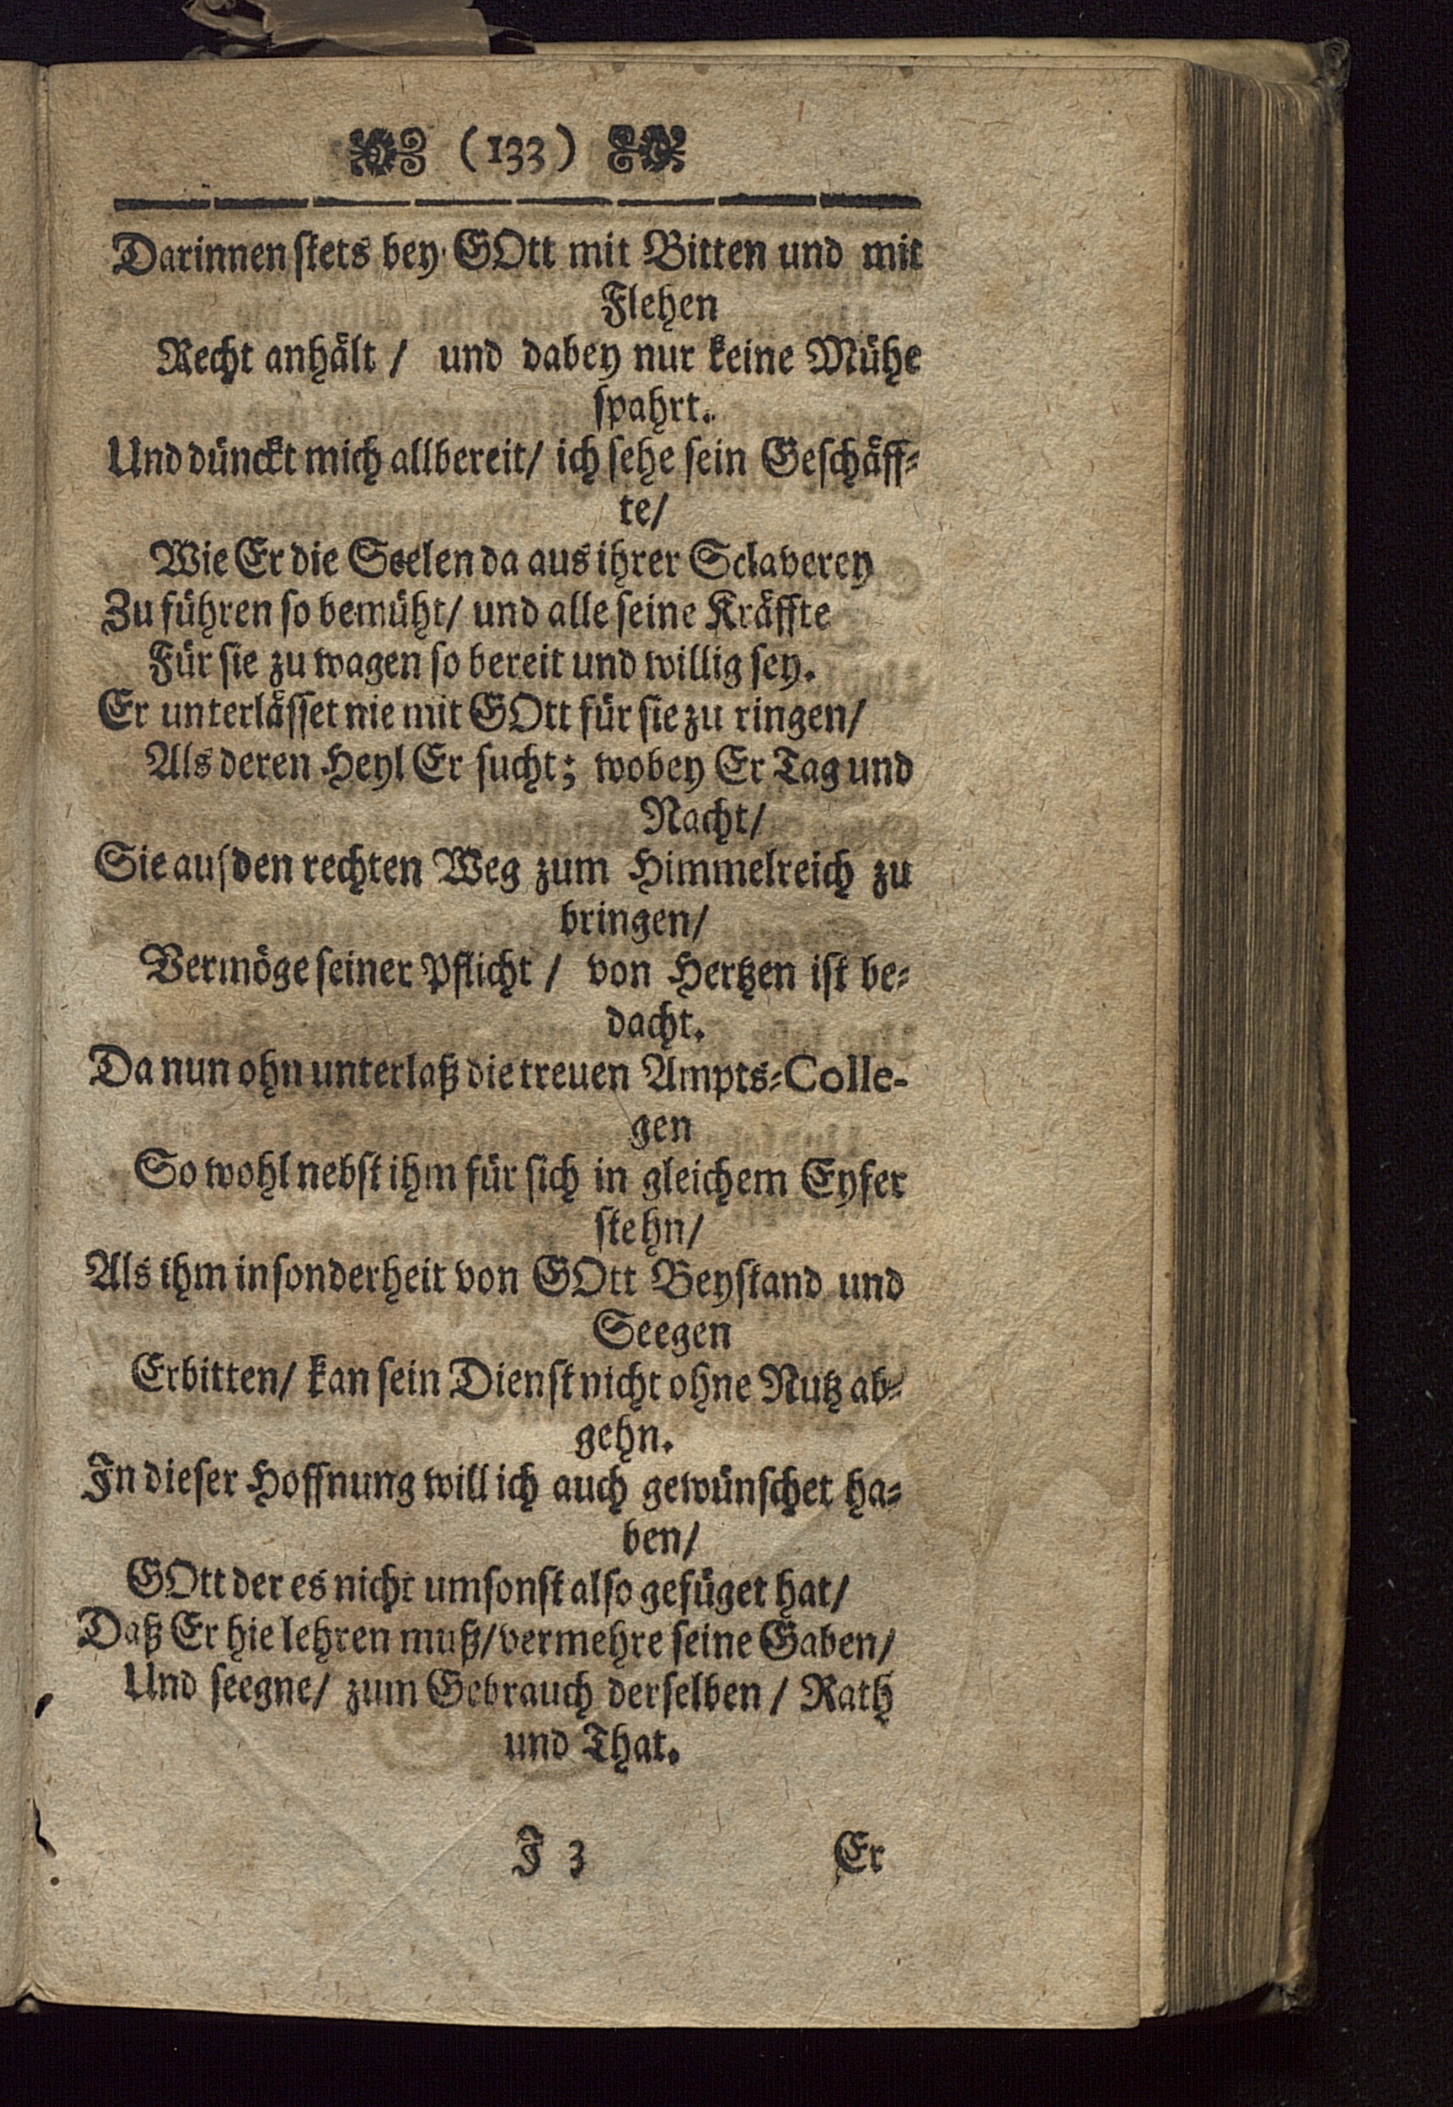 (133)
Darinnen stets bey GOtt mit Bitten und mit
Flehen
Recht anhält / und dabey nur keine Mühe
spahrt.
Und dünckt mich allbereit/ ich sehe sein Geschäff-
te/
Wie Er die Seelen da aus ihrer Sclaverey
Zu führen so bemüht/ und alle seine Kräffte
Für sie zu wagen so bereit und willig sey.
Er unterlässet nie mit GOtt für sie zu ringen/
Als deren Heyl Er sucht; wobey Er Tag und
Nacht/
Sie auf den rechten Weg zum Himmelreich zu
bringen/
Vermöge seiner Pflicht / von Hertzen ist be-
dacht.
Da nun ohn unterlaß die treuen Ampts-Colle-
gen
So wohl nebst ihm für sich in gleichem Eyfer
stehn/
Als ihm insonderheit von GOtt Beystand und
Seegen
Erbitten/ kan sein Dienst nicht ohne Nutz ab-
gehn.
In dieser Hoffnung will ich auch gewünschet ha-
ben/
GOtt der es nicht umsonst also gefüget hat/
Daß Er hie lehren muß/ vermehre seine Gaben/
Und seegne/ zum Gebrauch derselben / Rath
und That.
J 3 Er